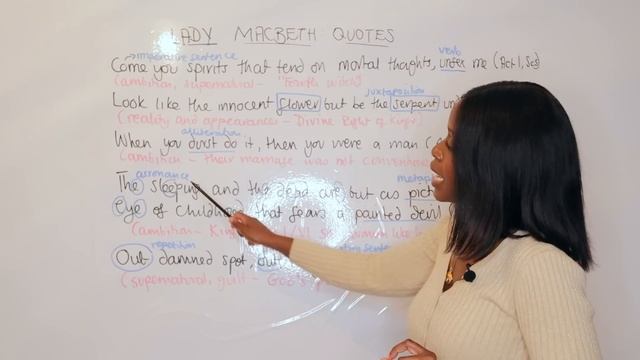 LADY MACBETH QUOTES
imperative sentence
verb
Come you spirits that tend on mortal thoughts, under me (Act 1, Sc5)
(ambition, supernatural - "Fourth witch")
juxtaposition
Look like the innocent flower but be the serpent
(reality and appearances - Divine Right of Kings)
alliteration
When you durst do it, then you were a man
(ambition - their marriage was not
assonance
The sleeping and the dead are but as
Eye of childhood that fears a painted devil
(ambition -
repetition
Out damned spot, out
(supernatural, guilt - God's